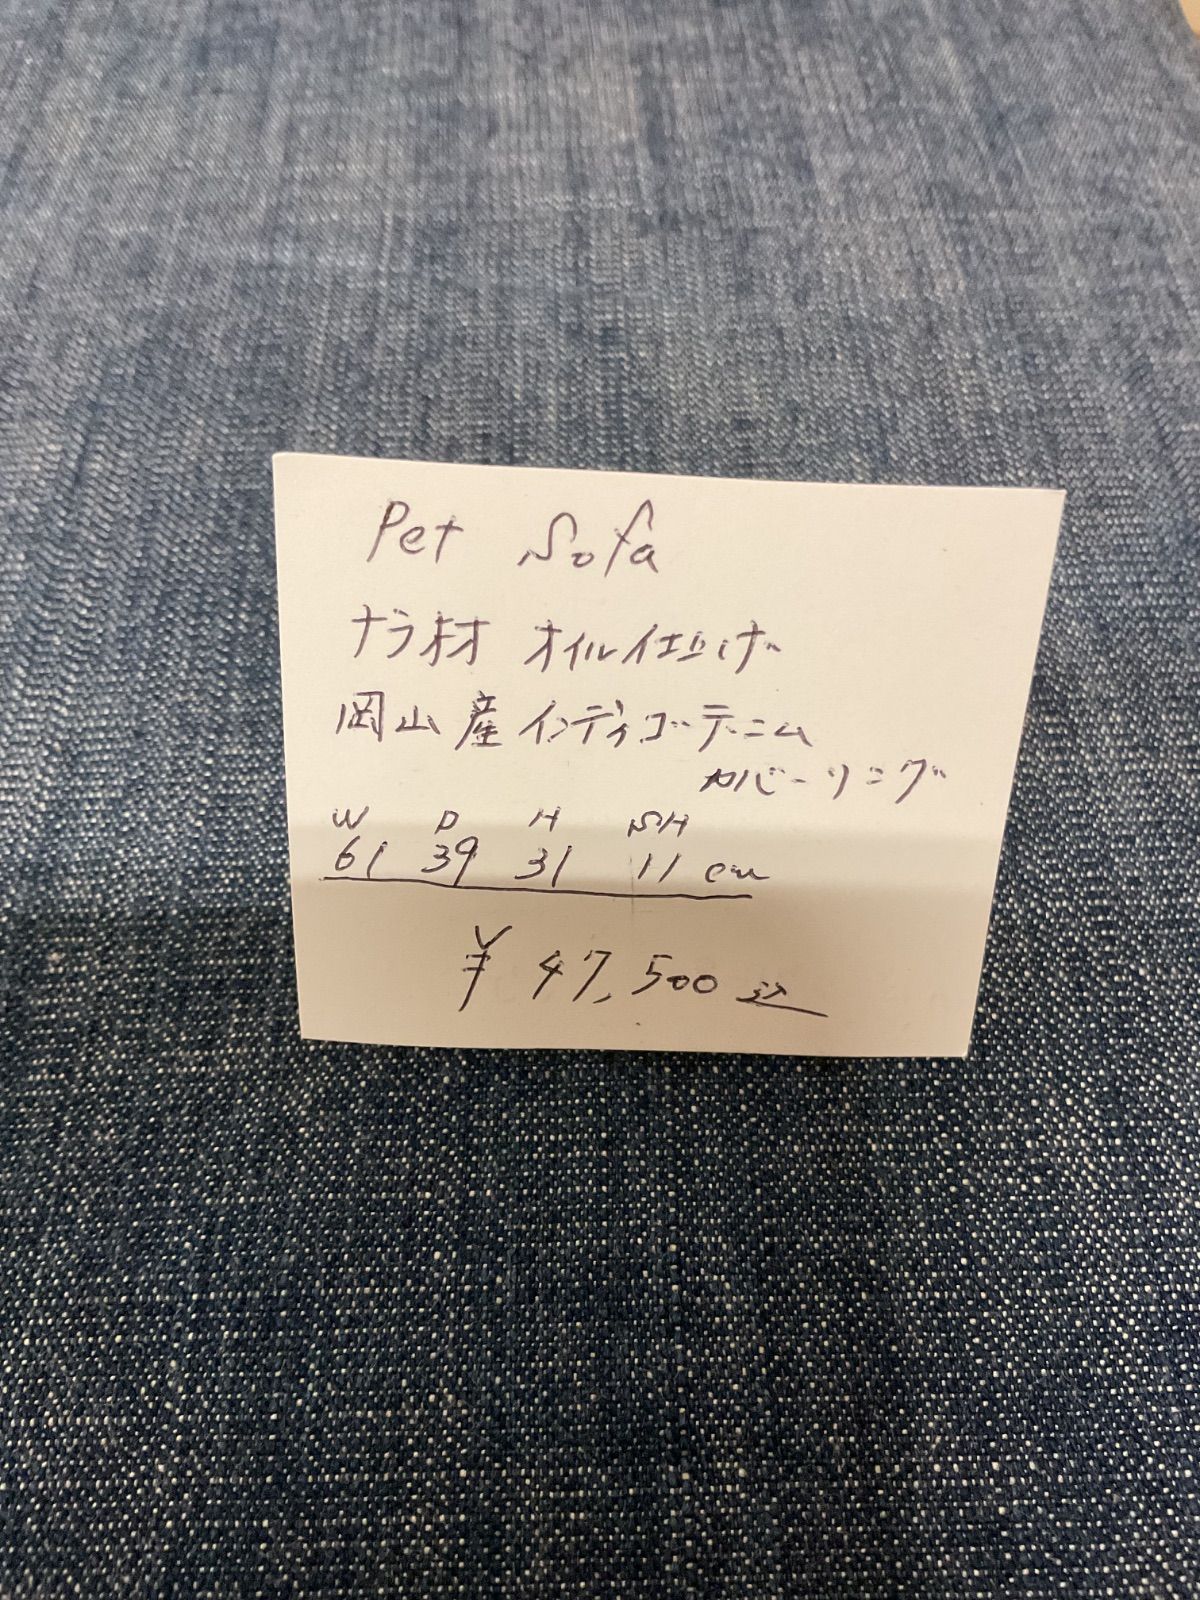 Pet Sofa
ナラ材 オイル仕上げ
岡山産インディゴデニム
カバーリング
W D H SH
61 39 31 11 cm
¥47,500込